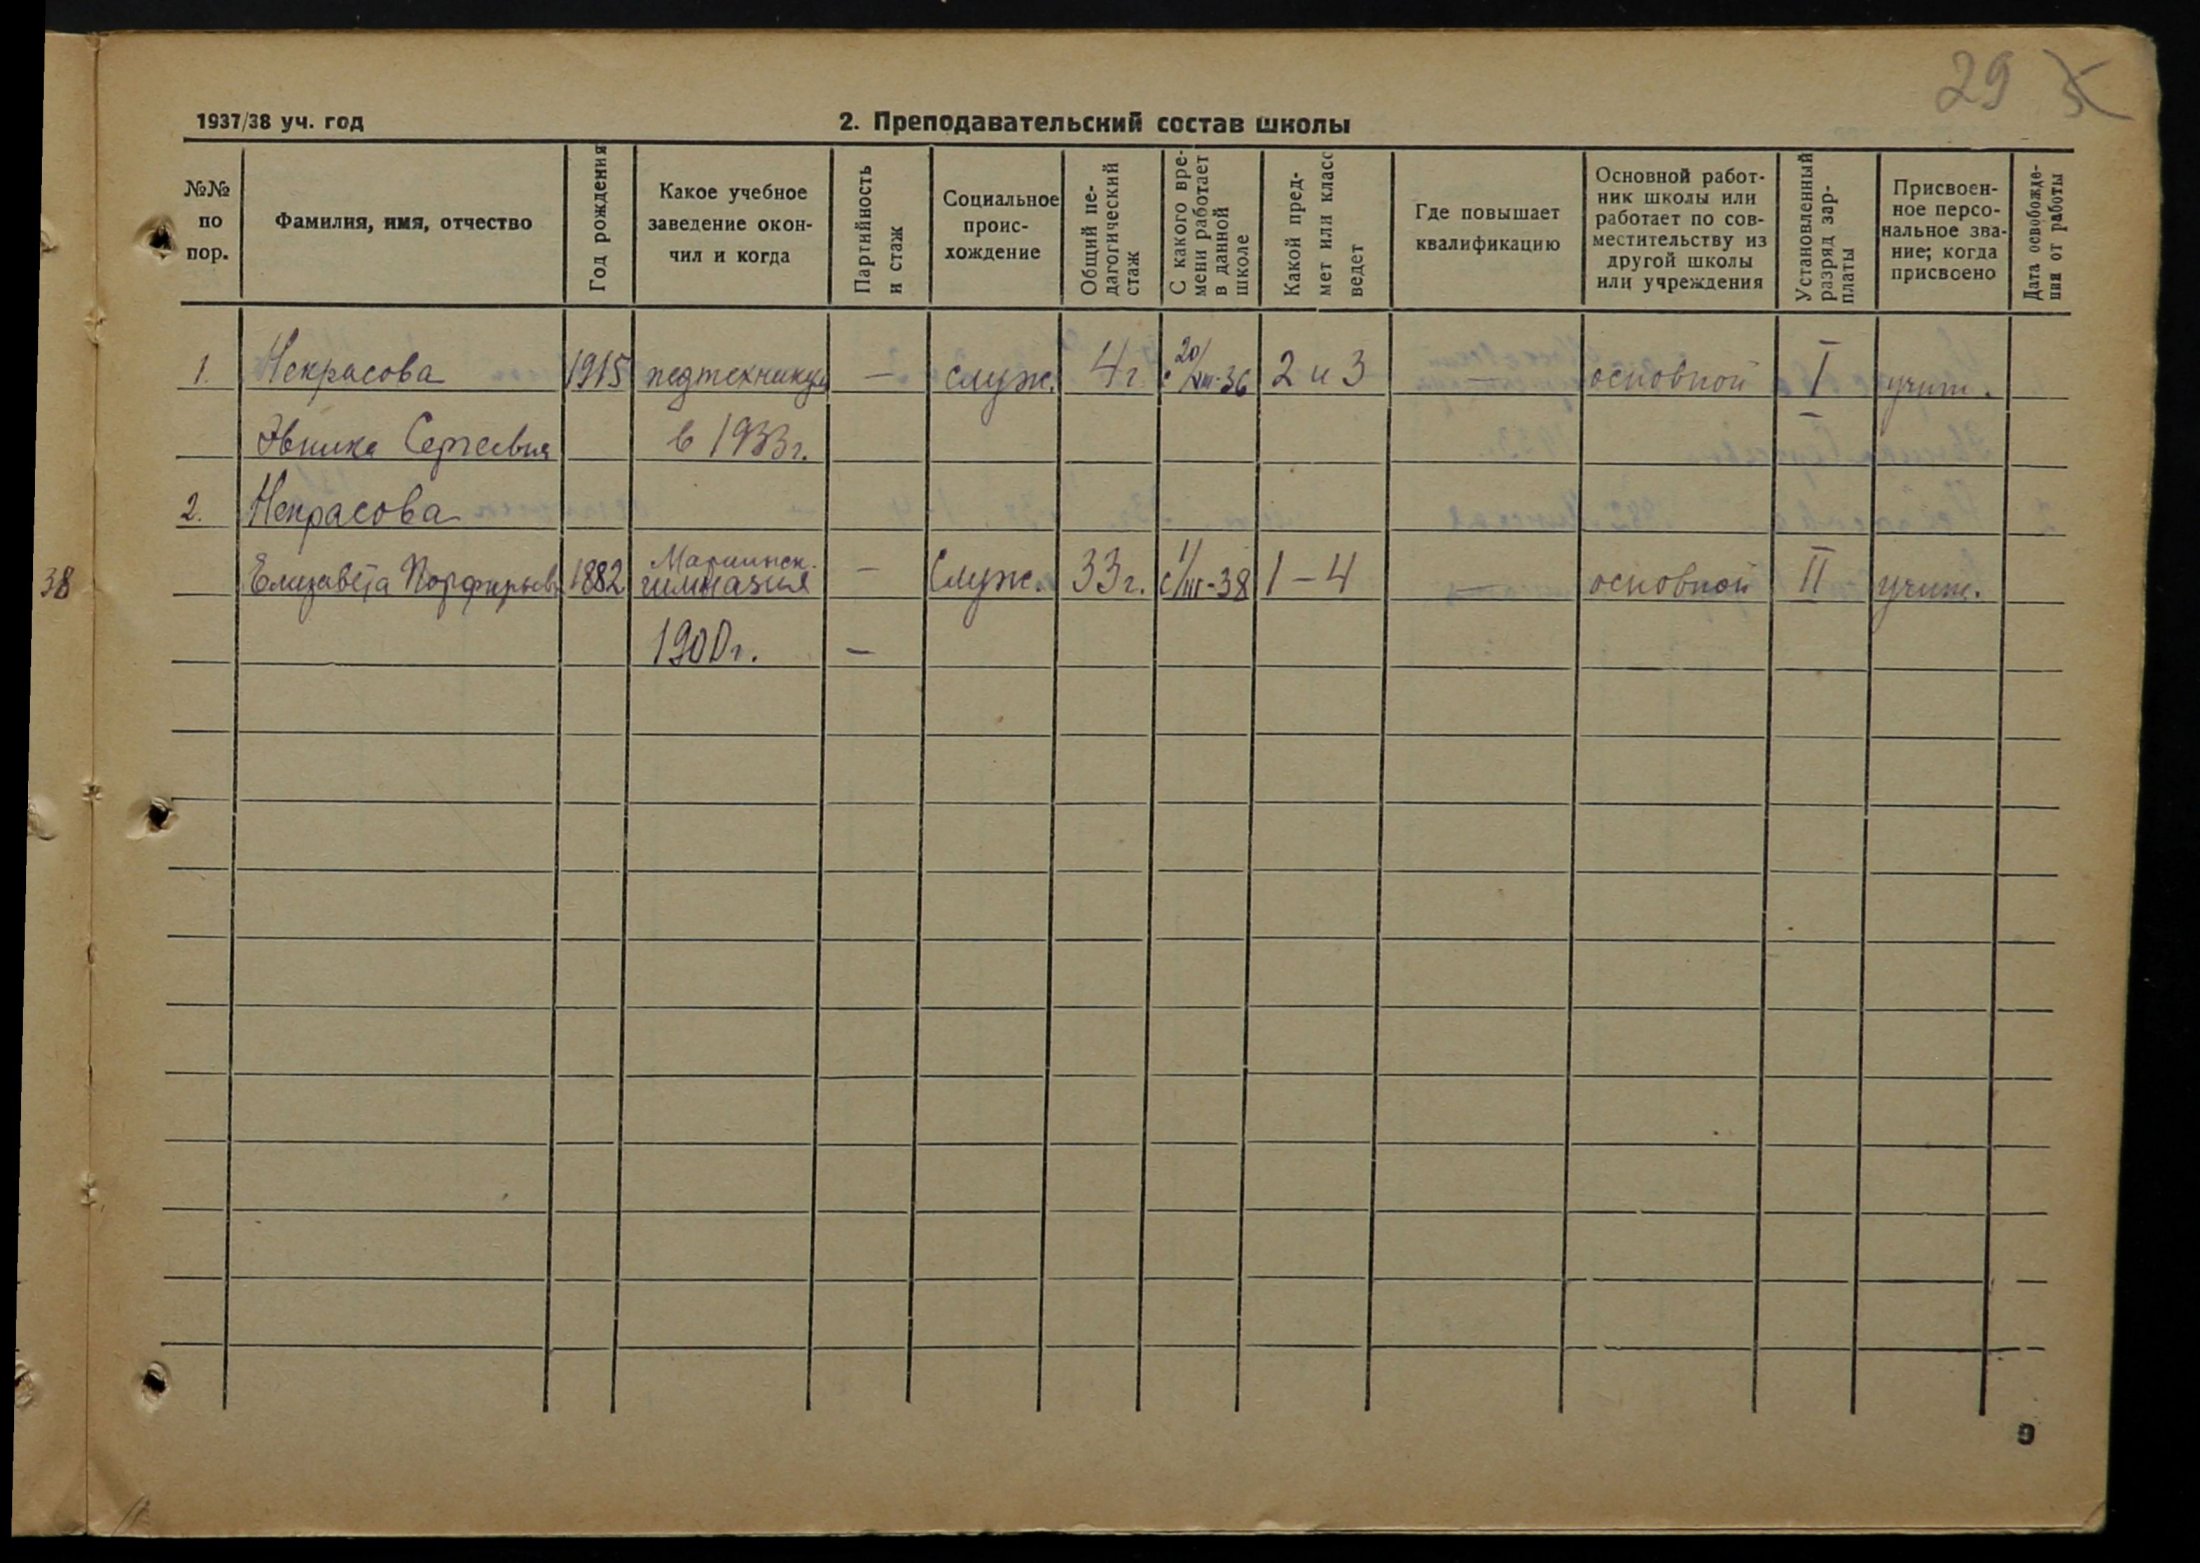 29
1937/38 уч. год
2. Преподавательский состав школы
№№ по пор.
Фамилия, имя, отчество
Год рождения
Какое учебное заведение окон-
чил и когда
Партийность и стаж
Социальное проис-
хождение
Общий пе-
дагогический стаж
С какого вре-
мени работает в данной школе
Какой пред-
мет или класс ведет
Где повышает квалификацию
Основной работ-
ник школы или работает по сов-
местительству из другой школы или учреждения
Установленный разряд зар-
платы
Присвоен-
ное персо-
нальное зва-
ние; когда присвоено
Дата освобожде-
ния от работы
1. Некрасова 1915 педтехникум — служ. 4 г. с 20/VIII-36 2 и 3 — основной I учит.
Эвника Сергеевна в 1933 г.
2. Некрасова
38
Елизавета Порфирьев 1882 Мариинск. гимназия — Служ. 33 г. с 1/III-38 1-4 — основной II учит.
1900 г. —
9